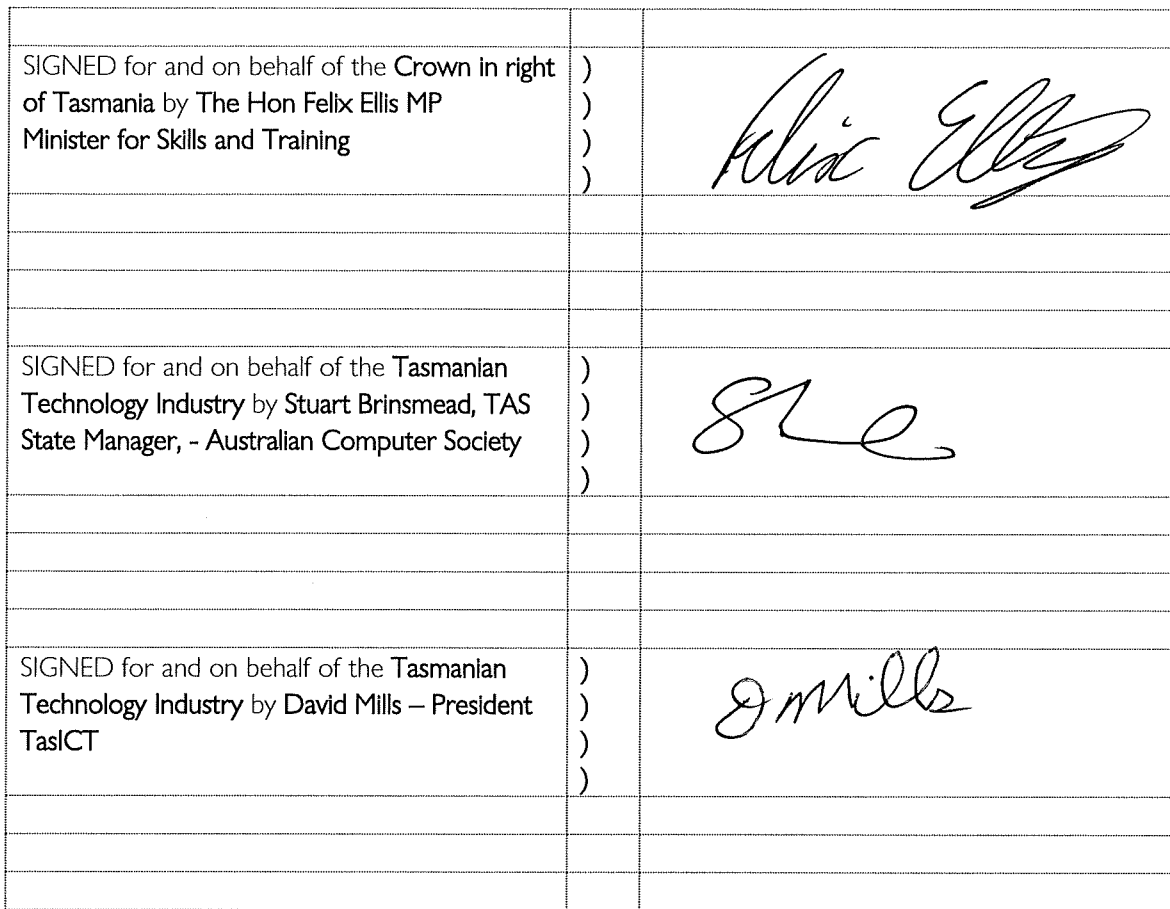 SIGNED for and on behalf of the Crown in right )
of Tasmania by The Hon Felix Ellis MP )
Minister for Skills and Training )
)
Felix Ellis
SIGNED for and on behalf of the Tasmanian )
Technology Industry by Stuart Brinsmead, TAS )
State Manager, - Australian Computer Society )
)
SIGNED for and on behalf of the Tasmanian )
Technology Industry by David Mills – President )
TasICT )
)
DMills